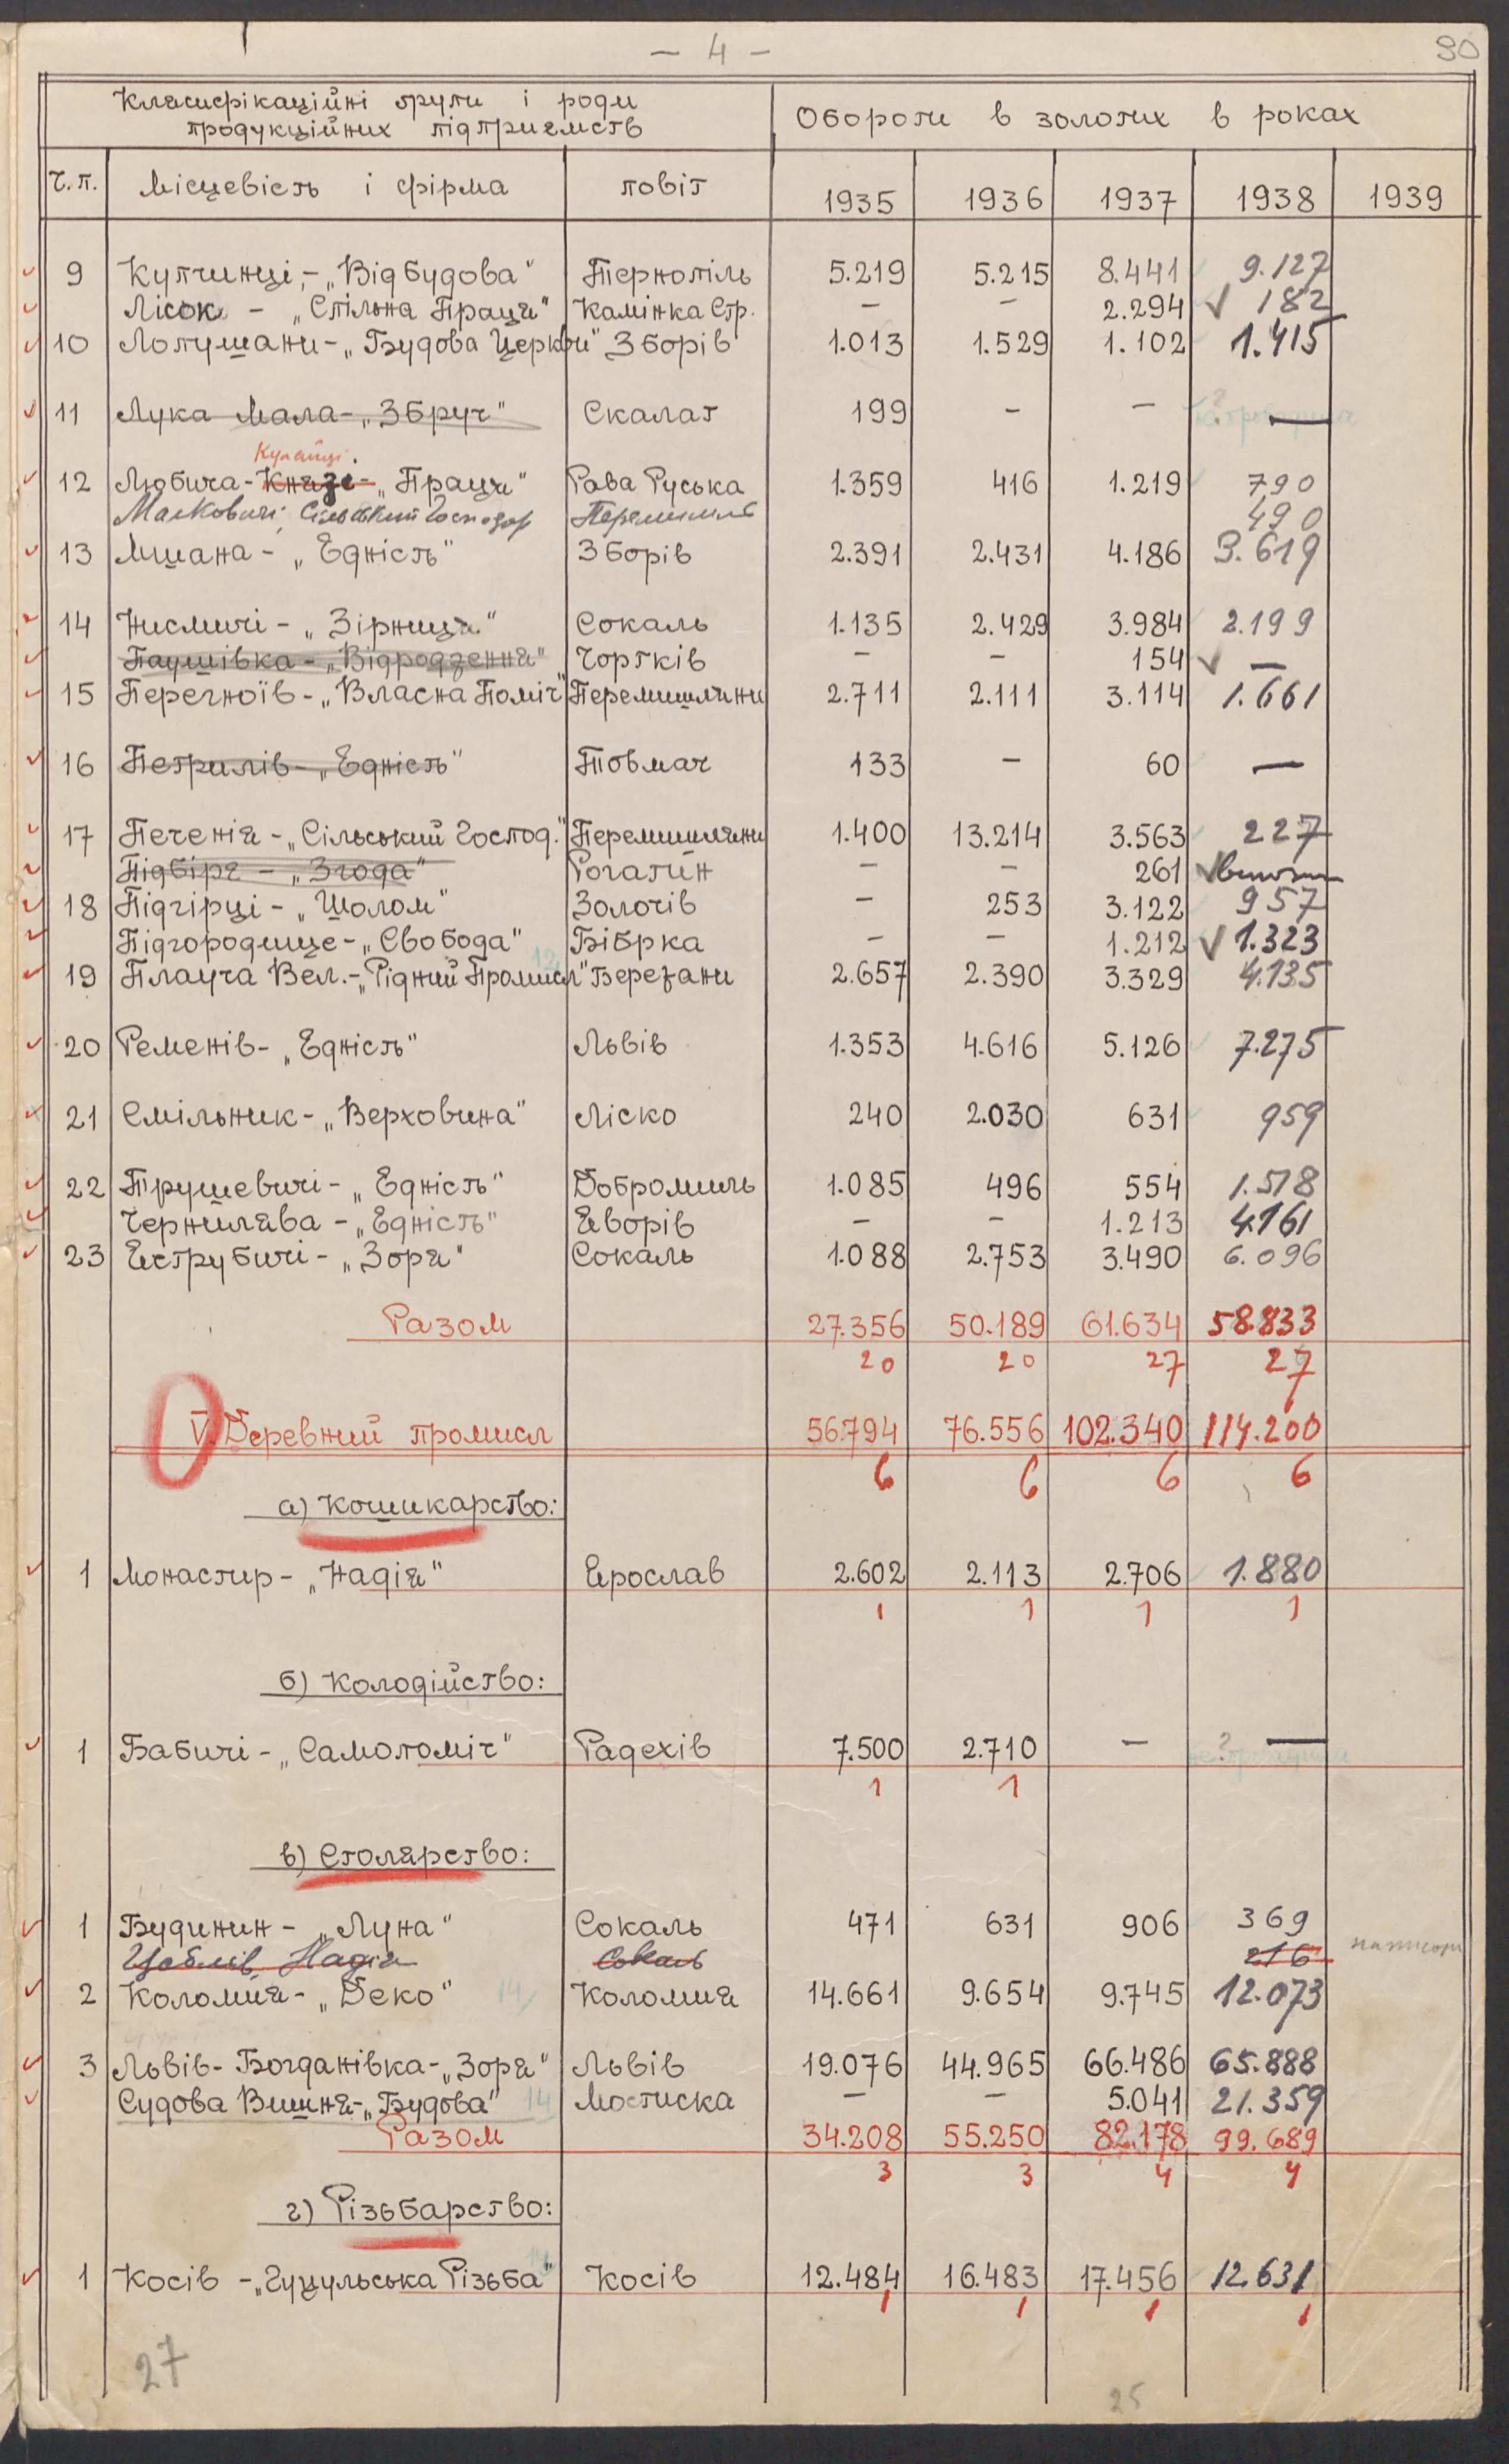 - 4 -
90
Класифікаційні групи і роди
продукційних підприємств
Обороти в золотих в роках
Ч.п. Місцевість і фірма повіт 1935 1936 1937 1938 1939
9 Купчинці,- „Відбудова" Тернопіль 5.219 5.215 8.441 9.127
Лісок - „Спільна Праця" Камінка Стр. - - 2.294 √ 182
10 Лопушани- „Будова Церкви" Зборів 1.013 1.529 1.102 1.415
11 Лука Мала- „Збруч" Скалат 199 - - ? —
12 Любича- Князі- „Праця" Рава Руська 1.359 416 1.219 790
Маковичі, Сільський Господар Перемишль 490
13 Мшана- „Єдність" Зборів 2.391 2.431 4.186 3.619
14 Нисмичі- „Зірниця" Сокаль 1.135 2.429 3.984 2.199
Паушівка- „Відродження" Чортків - - 154 √ —
15 Перегноїв- „Власна Поміч" Перемишляни 2.711 2.111 3.114 1.661
16 Петрилів- „Єдність" Товмач 133 - 60 —
17 Печенія- „Сільський Господ." Перемишляни 1.400 13.214 3.563 227
Підбіря - „Згода" Рогатин - - 261 √
18 Підгірці- „Шолом" Золочів - 253 3.122 957
Підгородище- „Свобода" Бібрка - - 1.212 √ 1.323
19 Плауча Вел.- „Рідний Промисл" Бережани 2.657 2.390 3.329 4.135
20 Ременів- „Єдність" Львів 1.353 4.616 5.126 7.275
21 Смільник- „Верховина" Ліско 240 2.030 631 959
22 Трушевичі- „Єдність" Добромиль 1.085 496 554 1.518
Чернилява - „Єдність" Яворів - - 1.213 4.161
23 Яструбичі- „Зоря" Сокаль 1.088 2.753 3.490 6.096
Разом 27.356 50.189 61.634 58.833
20 20 27 27
V. Деревний промисл 56.794 76.556 102.340 114.200
6 6 6 6
а) Кошикарство:
1 Монастир- „Надія" Ярослав 2.602 2.113 2.706 1.880
1 1 1 1
б) Колодійство:
1 Бабичі- „Самопоміч" Радехів 7.500 2.710 - ? —
1 1
в) Столярство:
1 Будинин- „Луна" Сокаль 471 631 906 369
Надія Сокаль 216
2 Коломия- „Деко" 14 Коломия 14.661 9.654 9.745 12.073
3 Львів- Богданівка- „Зоря" Львів 19.076 44.965 66.486 65.888
Судова Вишня- „Будова" 14 Мостиска - - 5.041 21.359
Разом 34.208 55.250 82.178 99.689
3 3 4 4
г) Різьбарство:
1 Косів - „Гуцульська Різьба" Косів 12.484 16.483 17.456 12.631
1 1 1 1
27
25